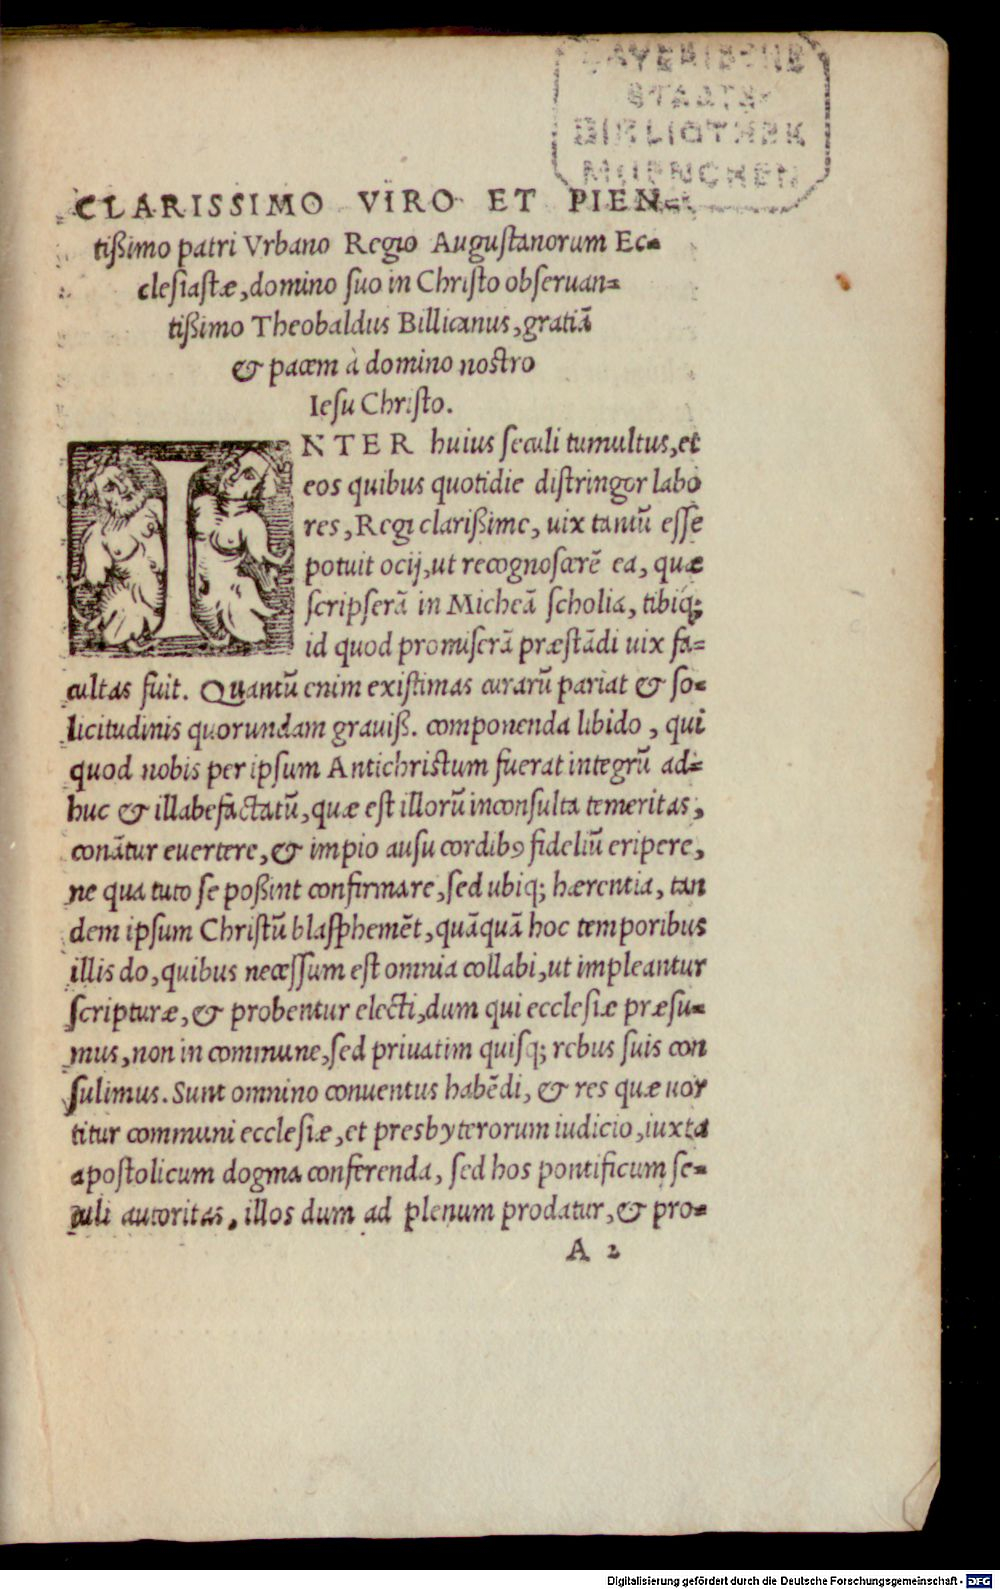 BAYERISCHE
STAATS-
BIBLIOTHEK
MUENCHEN
CLARISSIMO VIRO ET PIEN-
tißimo patri Vrbano Regio Augustanorum Ec-
clesiastæ, domino suo in Christo obseruan-
tißimo Theobaldus Billicanus, gratiã
& pacem à domino nostro
Iesu Christo.
INTER huius seculi tumultus, et
eos quibus quotidie distringor labo
res, Regi clarißime, uix tantũ esse
potuit ocij, ut recognoscerẽ ea, quæ
scripserã in Micheã scholia, tibiq;
id quod promiserã præstãdi uix fa-
cultas fuit. Quantũ enim existimas curarũ pariat & so-
licitudinis quorundam grauiß. componenda libido, qui
quod nobis per ipsum Antichristum fuerat integrũ ad-
huc & illabefactatũ, quæ est illorũ inconsulta temeritas,
conãtur euertere, & impio ausu cordibꝰ fideliũ eripere,
ne qua tuto se poßint confirmare, sed ubiq; hærentia, tan
dem ipsum Christũ blasphemẽt, quãquã hoc temporibus
illis do, quibus necessum est omnia collabi, ut impleantur
scripturæ, & probentur electi, dum qui ecclesiæ præsu-
mus, non in commune, sed priuatim quisq; rebus suis con
sulimus. Sunt omnino conuentus habẽdi, & res quæ uor
titur communi ecclesiæ, et presbyterorum iudicio, iuxta
apostolicum dogma conferenda, sed hos pontificum se-
culi autoritas, illos dum ad plenum prodatur, & pro-
A 2
Digitalisierung gefördert durch die Deutsche Forschungsgemeinschaft - DFG